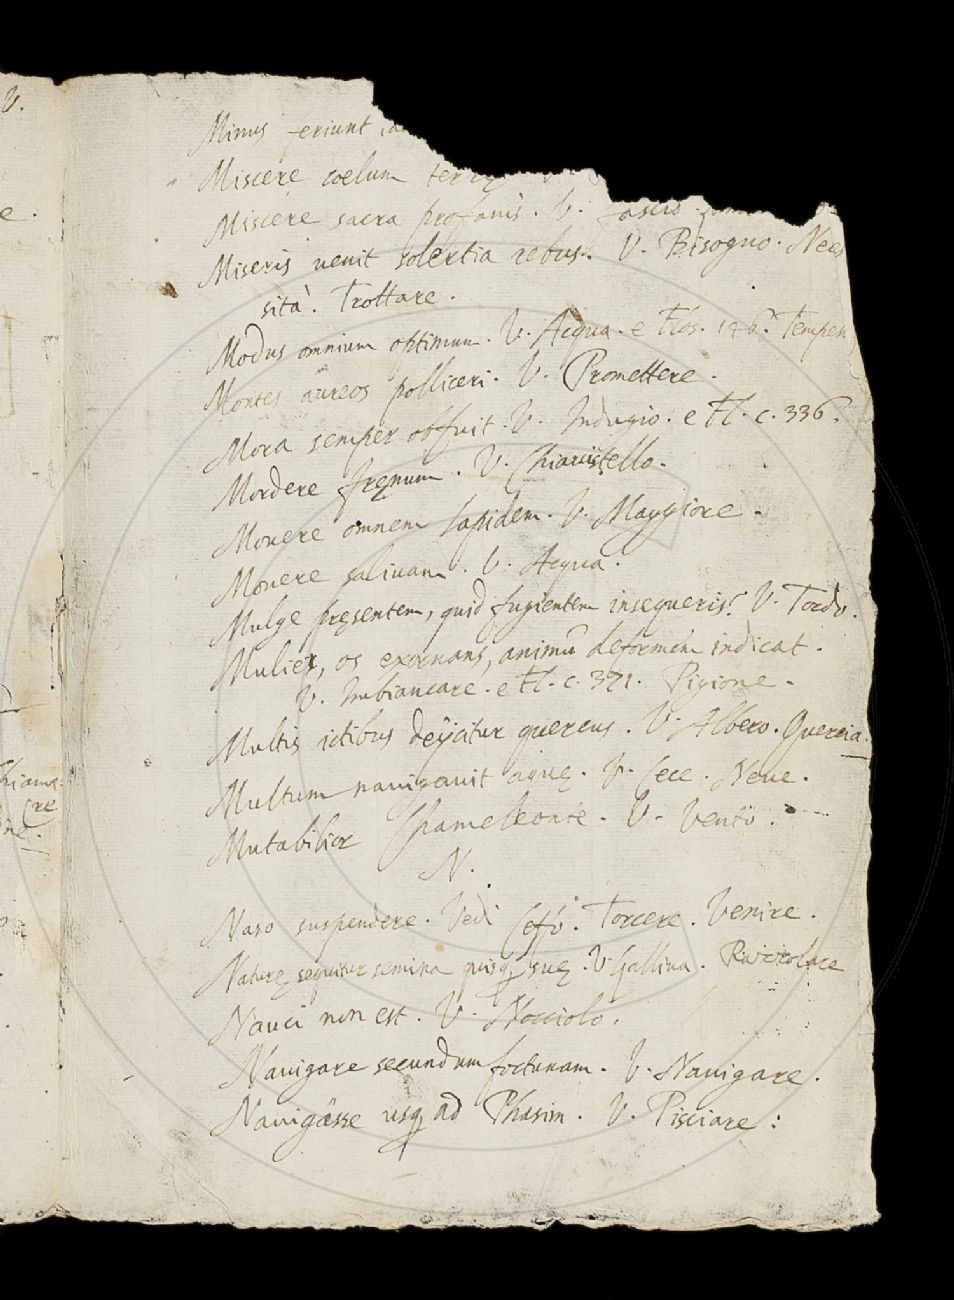 V.
e.
Minus feriunt
Miscere coelum terrę
Miscere sacra profanis. V. fascio
Miseris uenit solertia rebus. V. Bisogno. Neces
sità. Trottare.
Modus omnium optimum. V. Acqua. e Flos. Temper
Montes aureos polliceri. V. Promettere.
Mora semper obfuit. V. Indugio. e Fl. c. 336.
Mordere fręnum. V. Chiauistello.
Mouere omnem lapidem. V. Maggiore.
Mouere saliuam. V. Acqua.
Mulge pręsentem, quid fugientem insequeris? V. Tordo.
Mulier, os exornans, animũ deformem indicat.
V. Imbiancare. e Fl. c. 371. Pigione.
Multis ictibus deijcitur quercus. V. Albero. Quercia.
Multum nauigauit aquę. V. Cece. Neue.
Mutabilior Chameleonte. V. Vento.
N.
Naso suspendere. Vedi Ceffo. Torcere. Venire.
Naturę sequitur semina quisq suę. V. Gallina.
Nauci non est. V. Nocciolo.
Nauigare secundum fortunam. V. Nauigare.
Nauigasse usq ad Phasim. V. Pisciare: